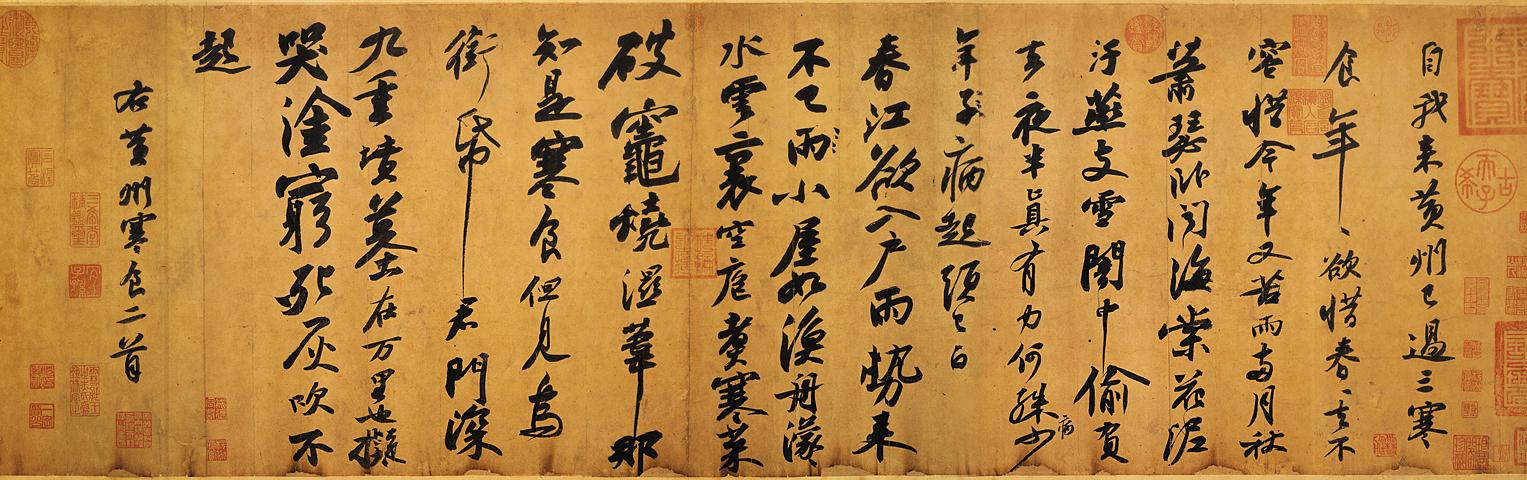 自我来黃州已過三寒
食年、欲惜春、去不
容惜今年又苦雨兩月秋
蕭瑟卧聞海棠花泥
汙燕支雪闇中偷負
去夜半真有力何殊少
病
年子病起頭已白
春江欲入戶雨勢来
不已雨小屋如漁舟濛
水雲裏空庖煮寒菜
破竈燒溼葦那
知是寒食但見烏
銜帋君門深
九重墳墓在万里也擬
哭塗窮死灰吹不
起
右黃州寒食二首
古希天子